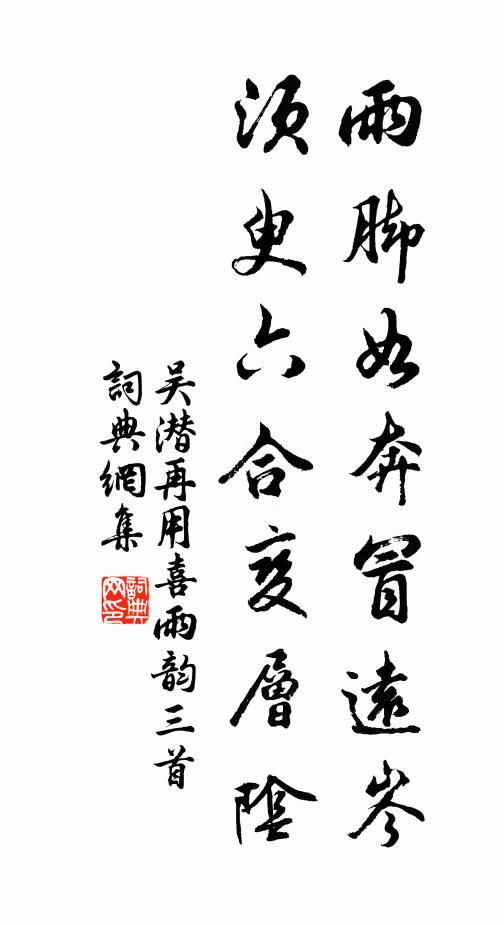 雨脚如奔冒遠岑
須臾六合变層陰
吴潜再用喜雨韵三首
詞典網集
詞典
网印